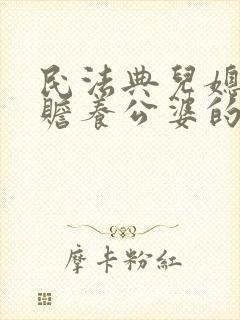 民法典兒媳
贍養公婆的
摩卡粉紅